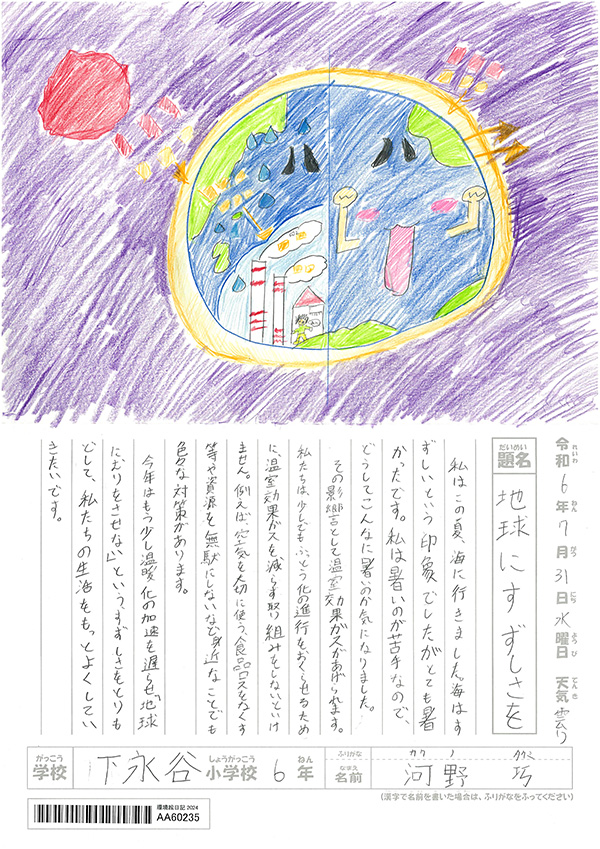 令和6年7月31日水曜日 天気 雲り
れいわ ねん がつ にち ようび てんき
だいめい
題名 地球にすずしさを
私はこの夏、海に行きました。海はす
ずしいという印象でしたがとても暑
かったです。私は暑いのが苦手なので、
どうしてこんなに暑いのか気になりました。
その影響として温室効果ガスがあげられます。
私たちは、少しでもふっとう化の進行をおくらせるため
に、温室効果ガスを減らす取り組みをしないといけ
ません。例えば、空気を大切に使う、食品ロスをなくす
等や資源を無駄にしないなど身近なことでも
色々な対策があります。
今年はもう少し温暖化の加速を遅らせ「地球
にむりをさせない」という、すずしさをとりも
どして、私たちの生活をもっとよくしてい
きたいです。
がっこう しょうがっこう ねん
学校 下永谷 小学校 6年
ふりがな カワノ タクミ
なまえ
名前 河野 巧
(漢字で名前を書いた場合は、ふりがなをふってください)
環境絵日記 2024
AA60235